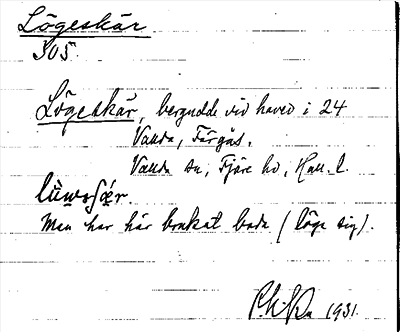 Lögeskär
305.
Lögeskär, bergudde vid havet i 24
Vallda, Färgås.
Vallda sn, Fjäre hd, Hall. l.
Man har här brukat bada (löga sig).
1931.